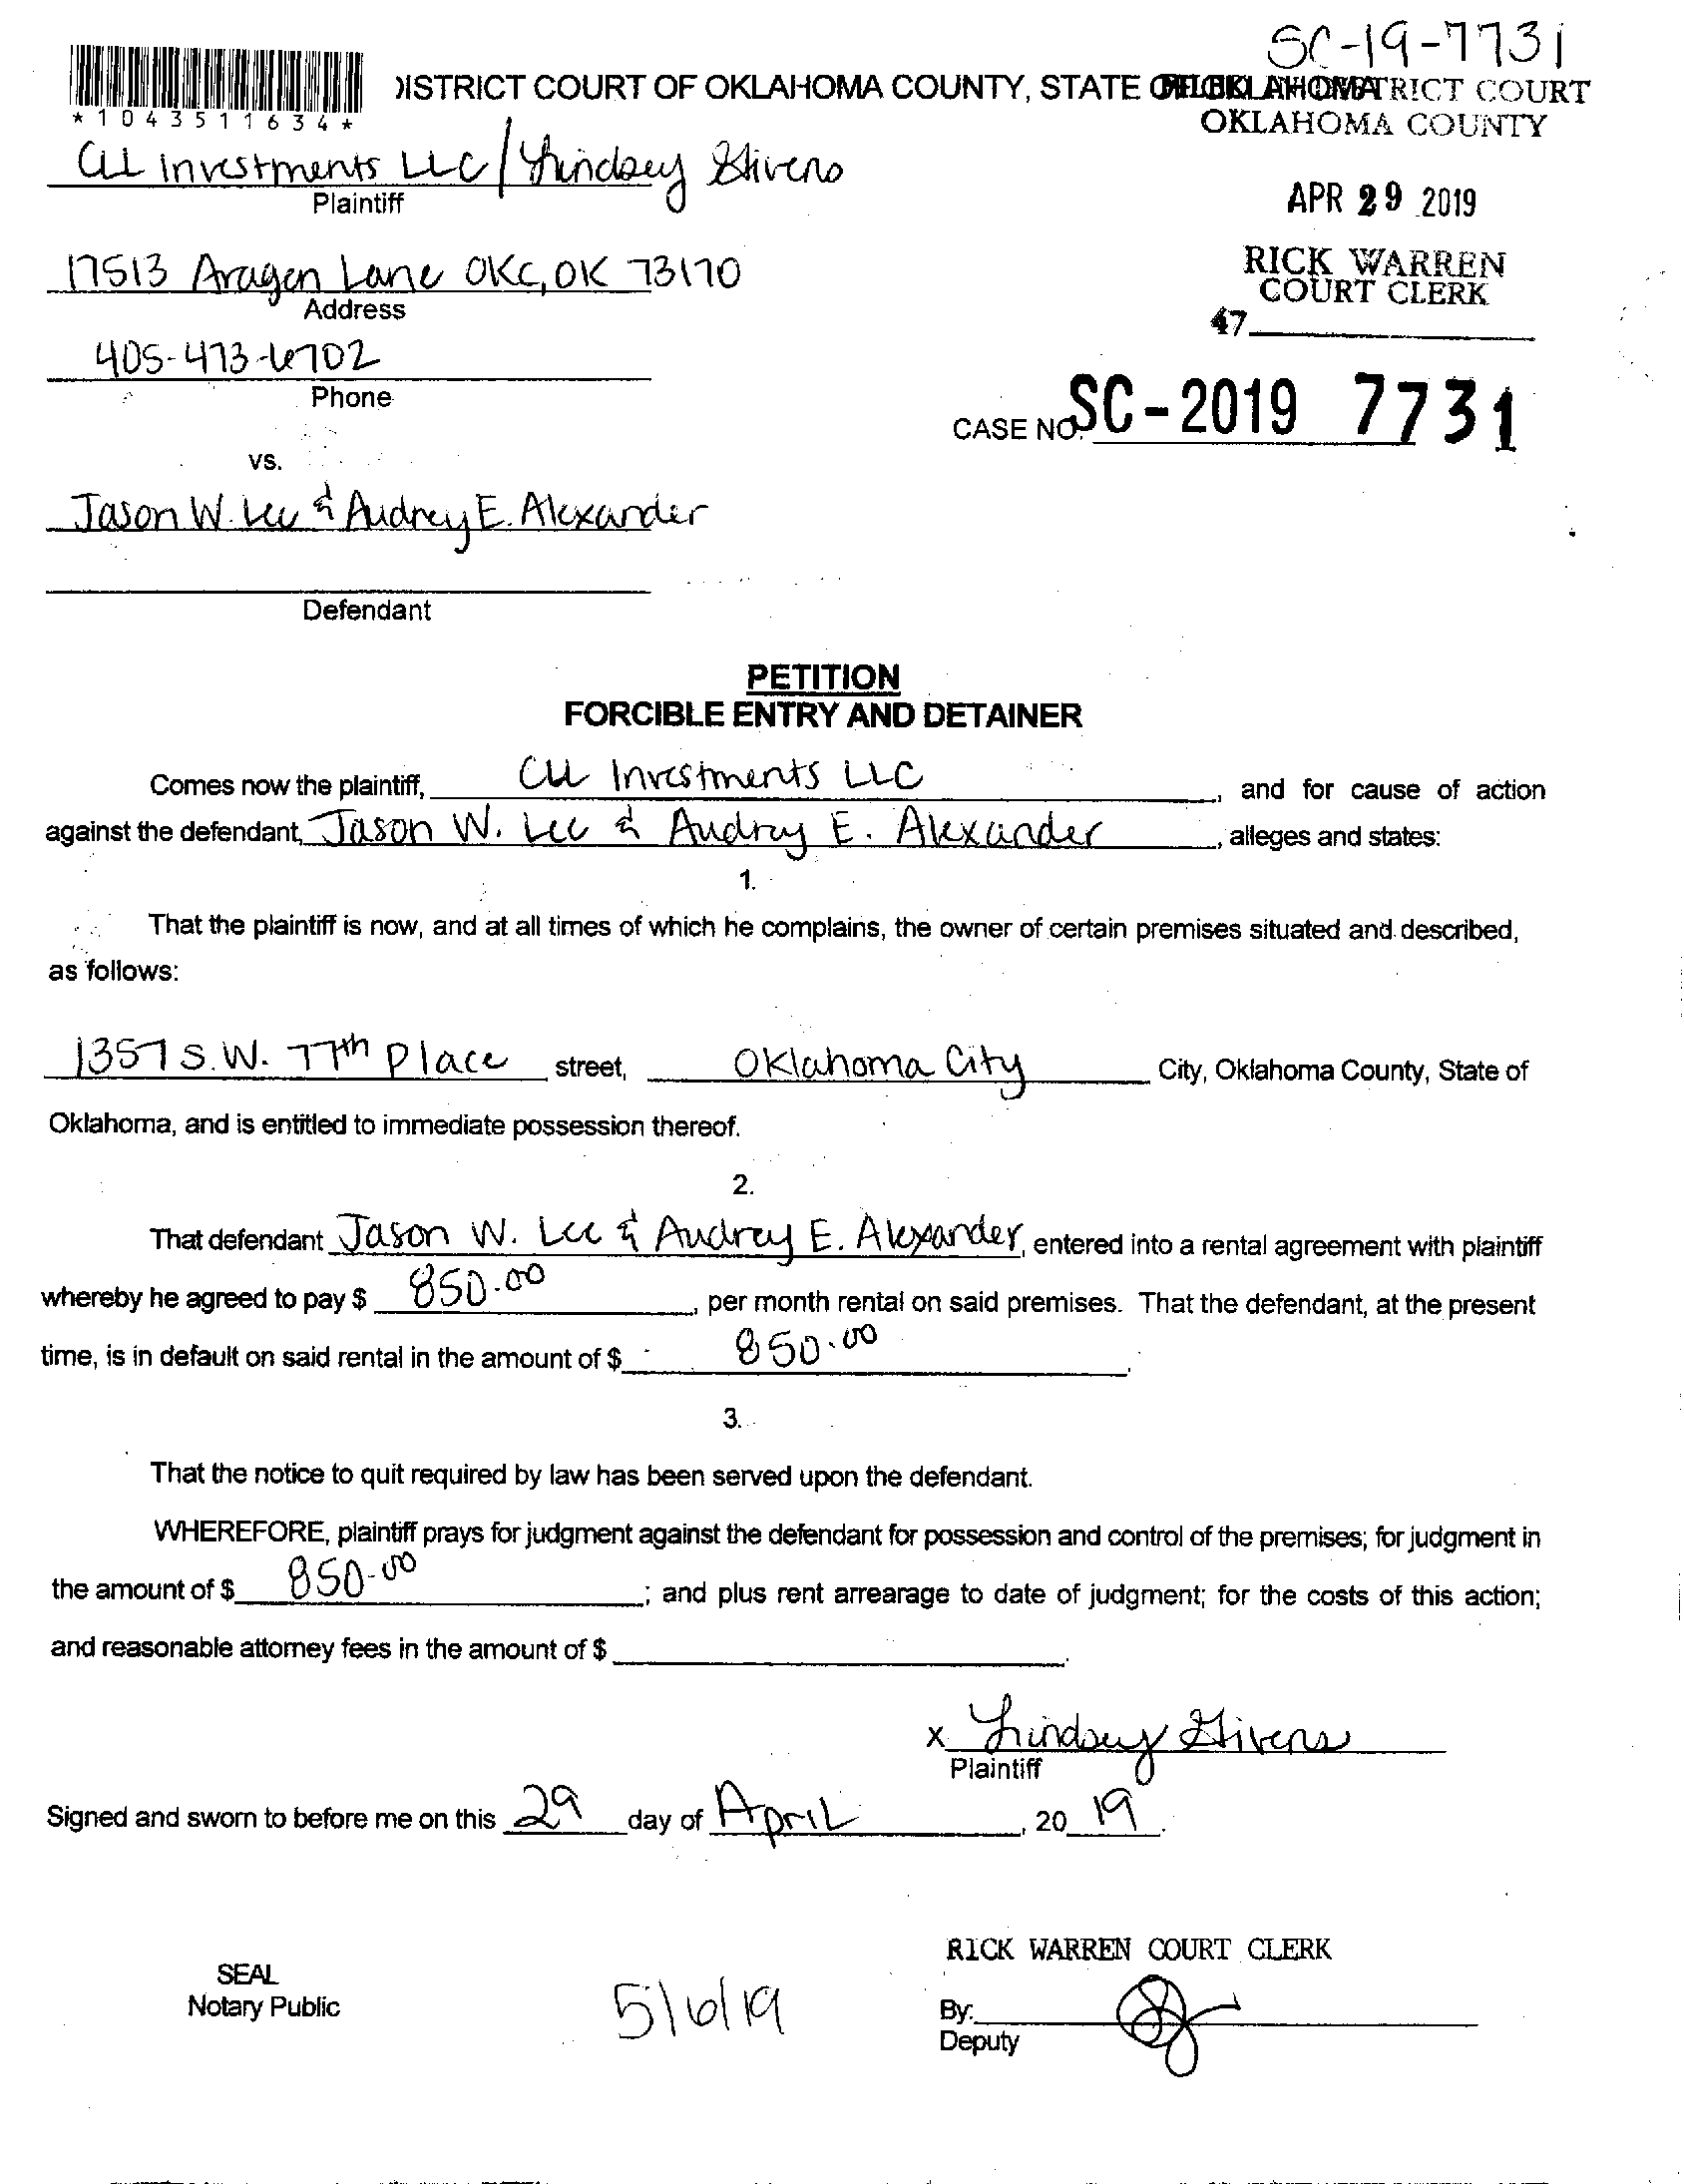 SC-19-7731
DISTRICT COURT OF OKLAHOMA COUNTY, STATE OF OKLAHOMA
FILED IN DISTRICT COURT
OKLAHOMA COUNTY
*1043511634*
CLL Investments LLC / Lindsey Stivens
Plaintiff
APR 29 2019
17513 Aragon Lane OKC, OK 73170
Address
RICK WARREN
COURT CLERK
47
405-473-6702
Phone
CASE NO. SC-2019 7731
vs.
Jason W. Lee & Audrey E. Alexander
Defendant
PETITION
FORCIBLE ENTRY AND DETAINER
Comes now the plaintiff, CLL Investments LLC, and for cause of action
against the defendant, Jason W. Lee & Audrey E. Alexander, alleges and states:
1.
That the plaintiff is now, and at all times of which he complains, the owner of certain premises situated and described,
as follows:
1357 S.W. 77th Place street, Oklahoma City City, Oklahoma County, State of
Oklahoma, and is entitled to immediate possession thereof.
2.
That defendant Jason W. Lee & Audrey E. Alexander, entered into a rental agreement with plaintiff
whereby he agreed to pay $ 850.00, per month rental on said premises. That the defendant, at the present
time, is in default on said rental in the amount of $ 850.00.
3.
That the notice to quit required by law has been served upon the defendant.
WHEREFORE, plaintiff prays for judgment against the defendant for possession and control of the premises; for judgment in
the amount of $ 850.00; and plus rent arrearage to date of judgment; for the costs of this action;
and reasonable attorney fees in the amount of $
x Lindsey Stivens
Plaintiff
Signed and sworn to before me on this 29 day of April, 20 19.
RICK WARREN COURT CLERK
SEAL
Notary Public
5/6/19
By:
Deputy